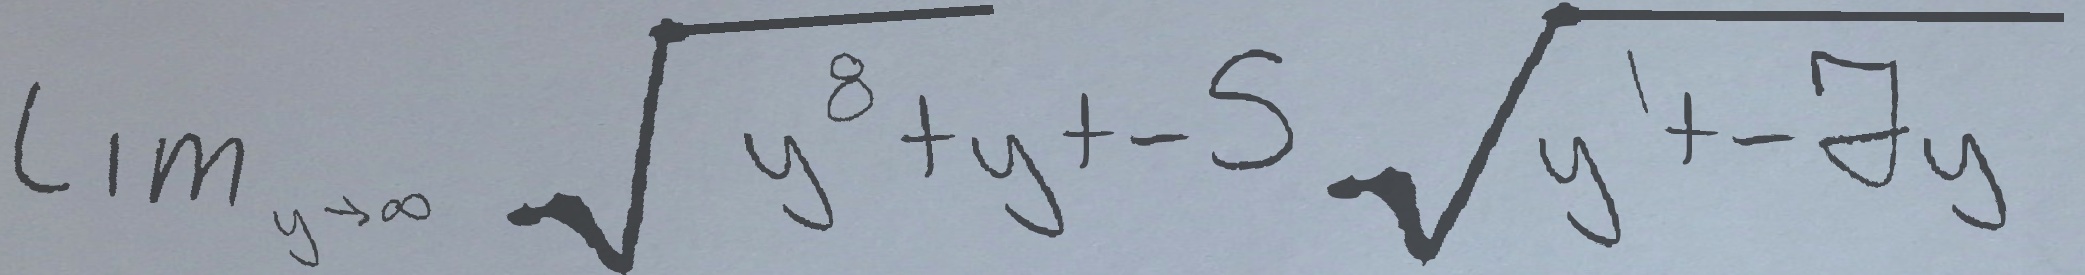 Lim y→∞ √(y⁸+y)+-5√(y¹+-7y)